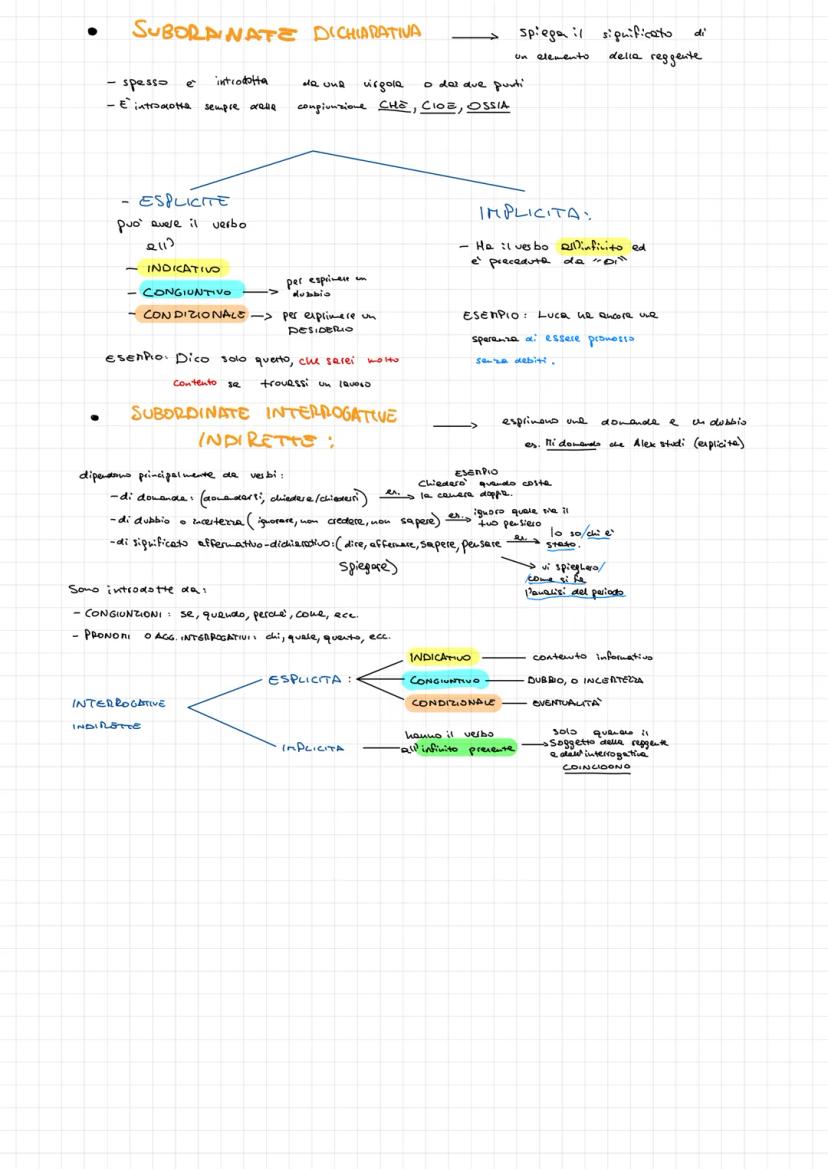 • SUBORDINATE DICHIARATIVA → spiega il significato di
un elemento della reggente
- spesso è introdotta da una virgola o dai due punti
- È introdotta sempre dalla congiunzione CHE, CIOÈ, OSSIA
- ESPLICITE
può avere il verbo
all'
- INDICATIVO
- CONGIUNTIVO → per esprimere un
dubbio
- CONDIZIONALE → per esplimere un
DESIDERIO
ESEMPIO: Dico solo questo, che sarei molto
contento se trovassi un lavoro
IMPLICITA:
- Ha il verbo all'infinito ed
è preceduta da "DI"
ESEMPIO: Luca ha ancora una
speranza di essere promosso
senza debiti.
• SUBORDINATE INTERROGATIVE
INDIRETTE:
→ esprimono una domanda e un dubbio
es. Mi domando che Alex studi (esplicita)
dipendono principalmente da verbi:
-di domanda: (domandarsi, chiedere/chiedersi) es. →
ESEMPIO
Chiederò quando costa
la camera doppia.
-di dubbio o incertezza (ignorare, non credere, non sapere) es. → ignoro quale sia il
tuo pensiero
-di significato affermativo-dichiarativo: (dire, affermare, sapere, pensare es. → lo so/chi è
stato.
spiegare)
→ vi spiegherò/
come si fa
l'analisi del periodo
Sono introdotte da:
- CONGIUNZIONI: se, quando, perché, come, ecc.
- PRONOMI O AGG. INTERROGATIVI: chi, quale, quanto, ecc.
INTERROGATIVE
INDIRETTE
ESPLICITA:
INDICATIVO — contenuto informativo
CONGIUNTIVO — DUBBIO, O INCERTEZZA
CONDIZIONALE — EVENTUALITÀ
IMPLICITA — hanno il verbo
all'infinito presente →
solo quando il
soggetto della reggente
e dell'interrogativa
COINCIDONO